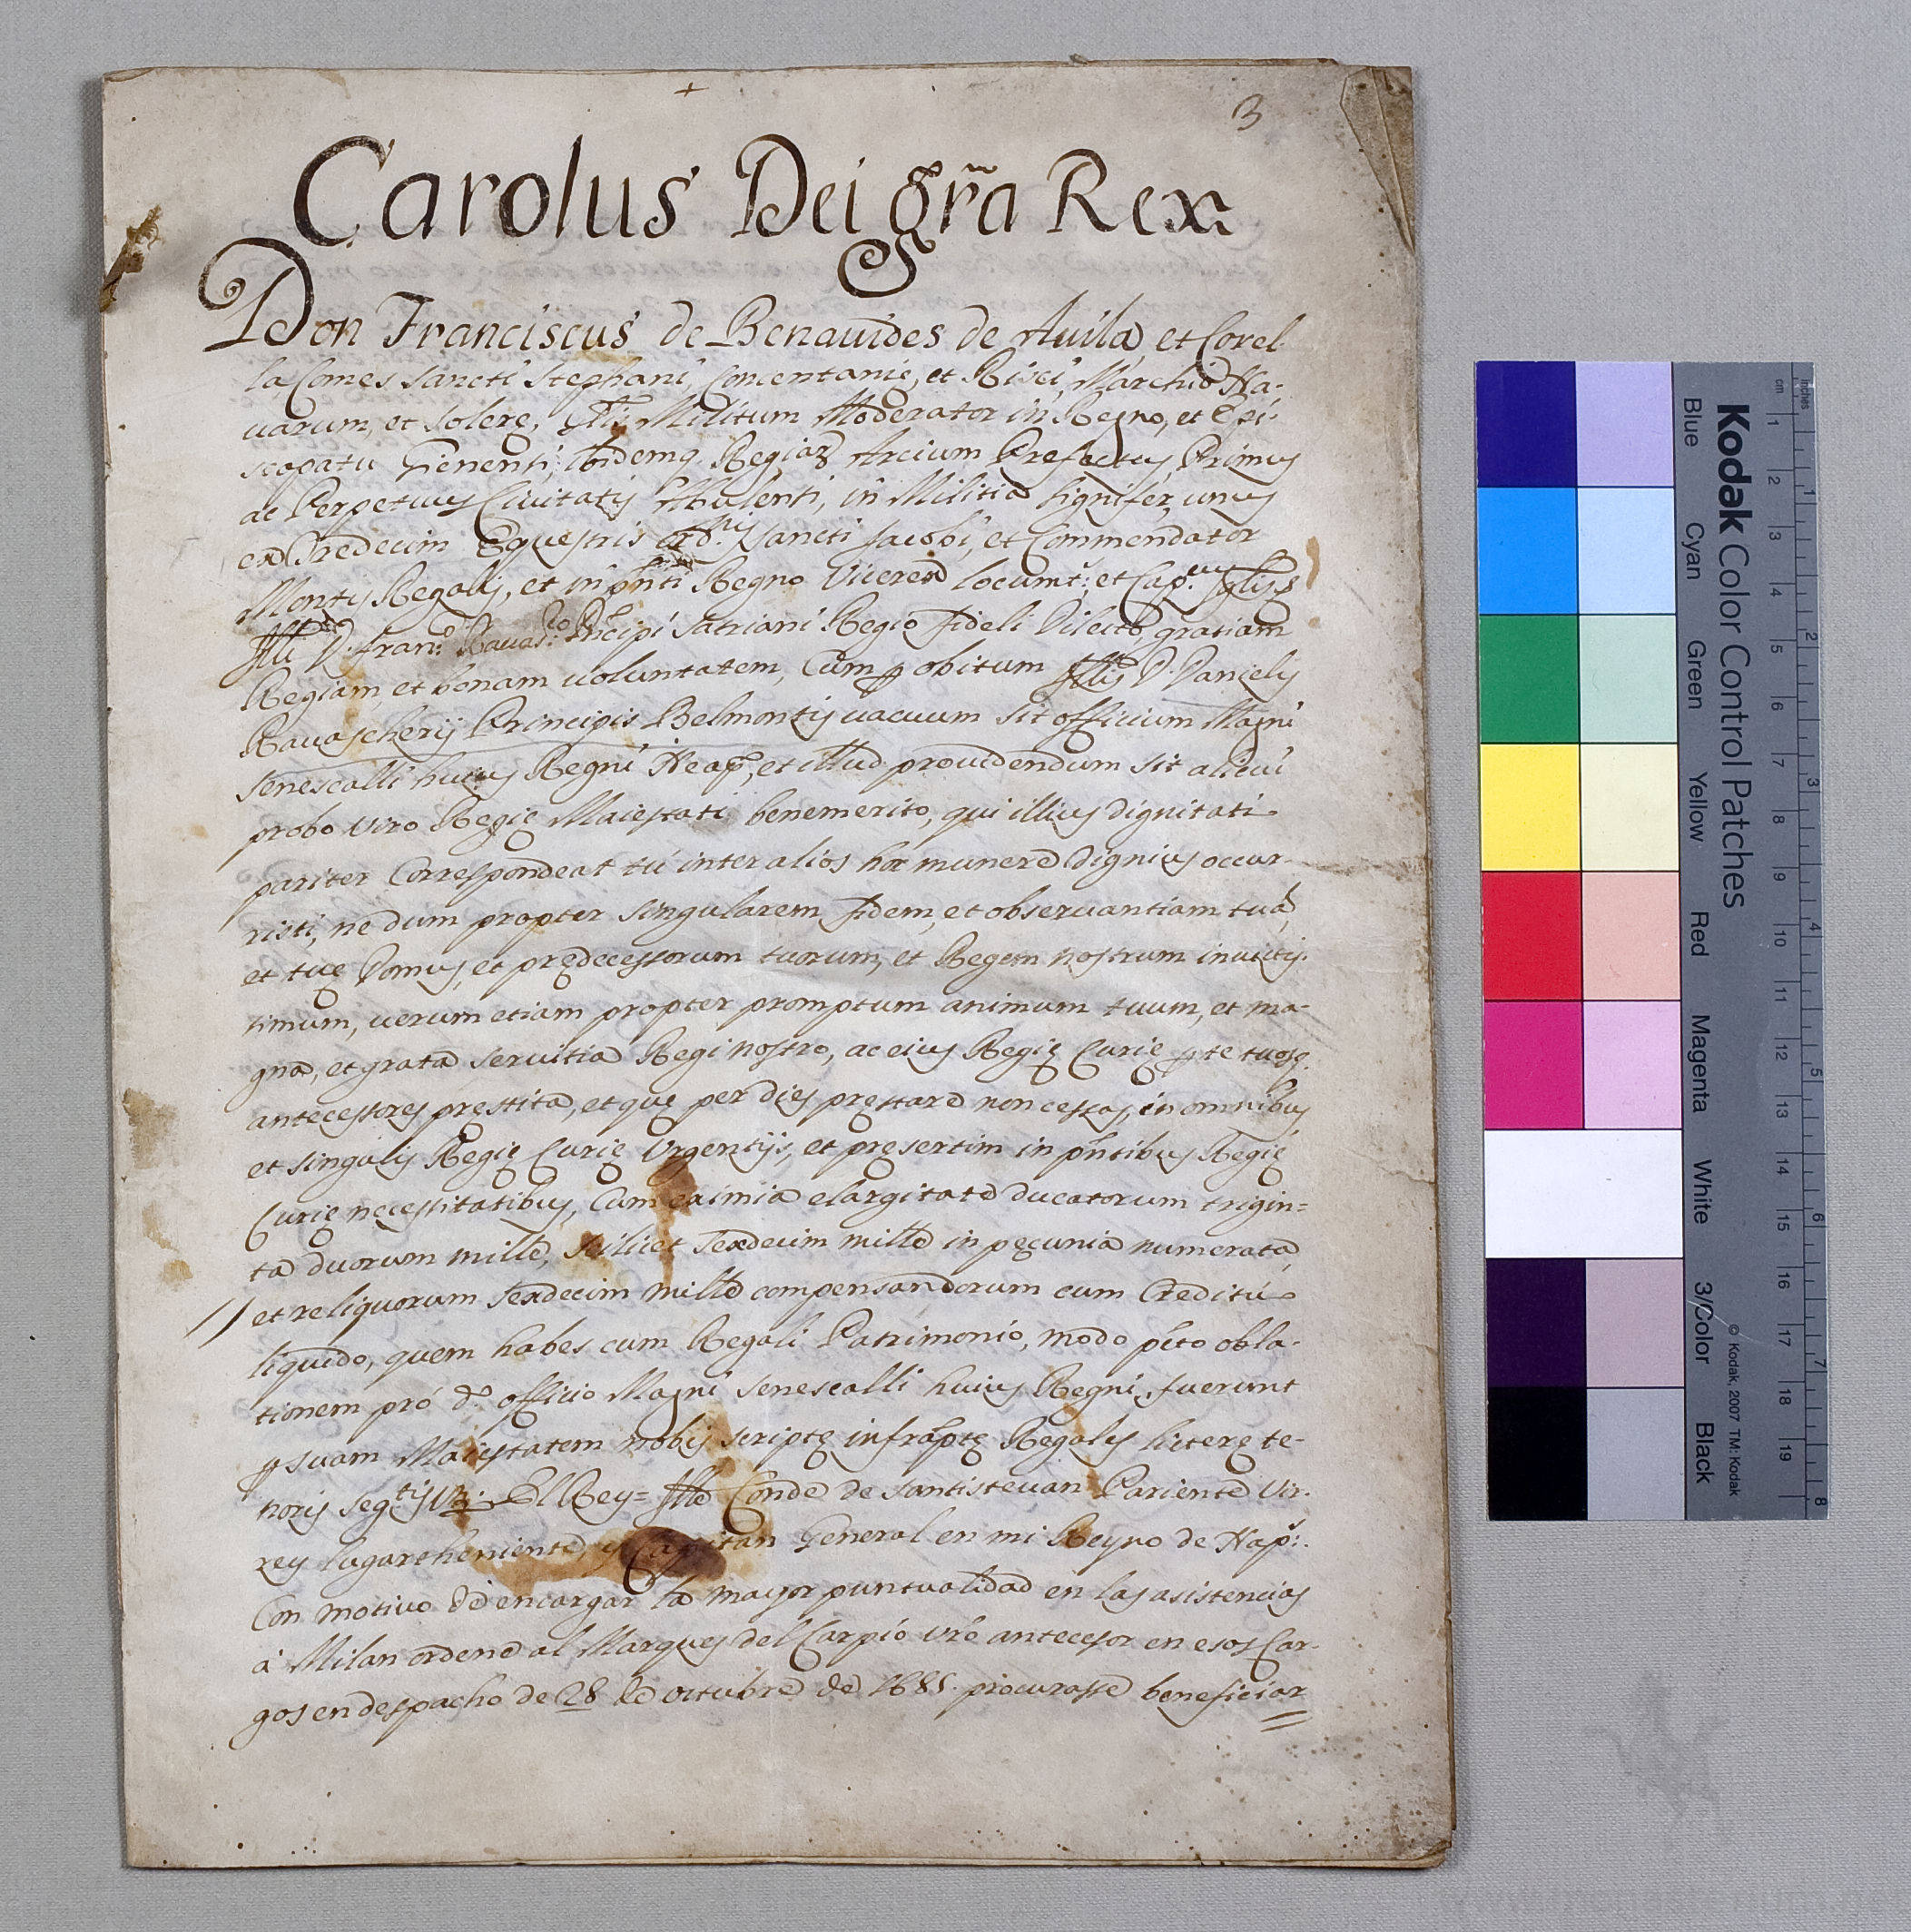 +
3
Carolus Dei grã Rex
Don Franciscus de Benauides de Auila et Corel
la, Comes Sancti Stephani, Concentanię, et Risci, Marchio Na-
uarum, et Solerę, Militum Moderator in Regno, et Epi-
scopatu Gienensi, Ibidemq Regiar Arcium Prefectus, Primus
ac Perpetuus Ciuitatis Abulensi, in Militia signifer, unus
ex Tredecim Equestris ord.nis sancti Jacobi, et Commendator
Montis Regalis, et in pñti Regno Vicerex locumt.s et Cap.eus Glis &
Illi D. Fran.o Rauas.o Pñcipi Satriani Regio fideli Dilecto gratiam
Regiam, et bonam uoluntatem, Cum p obitum Illis D. Danielis
Rauascherij Principis Belmontis uacuum sit officium Magni
Senescalli huius Regni Neap, et illud prouidendum sit alicui
probo viro Regię Maiestati benemerito, qui illius dignitati
pariter Correspondeat tu inter alios hoc munere dignius occur-
risti, ne dum propter singularem fidem, et obseruantiam tua,
et tuę Domus, et prędecessorum tuorum, et Regem nostrum inuictis-
simum, uerum etiam propter promptum animum tuum, et ma-
gna, et grata seruitia Regi nostro, ac eius Regię Curię p te tuosq.
antecessores pręstita, et quę per dies pręstare non cessas, in omnibus
et singulis Regię Curię Vrgentijs, et pręsertim in pñtibus Regię
Curię necessitatibus, Cum eximia elargitate ducatorum trigin=
ta duorum mille, scilicet Sexdecim mille in pecunia numerata,
et reliquorum Sexdecim mille compensandorum cum Creditu
liquido, quem habes cum Regali Patrimonio, modo pčto obla-
tionem pro d.o officio Magni Senescalli huius Regni, fuerunt
p suam Maiestatem nobis scriptę infraptę Regales litterę te-
noris seq.tis Vz. El Rey= Ille Conde de Santisteuan Pariente Vir-
rey lugartheniente, y Capitan General en mi Reyno de Nap.s.
Con motiuo de encargar la mayor puntualidad en las asistencias
à Milan ordene al Marques del Carpio vrõ antecesor en esos Car-
gos en despacho de 28 de octubre de 1685. procurasse beneficiar
Kodak Color Control Patches
Blue Cyan Green Yellow Red Magenta White 3/Color Black
© Kodak, 2007 TM: Kodak
cm 1 2 3 4 5 6 7 8 9 10 11 12 13 14 15 16 17 18 19
inches 1 2 3 4 5 6 7 8